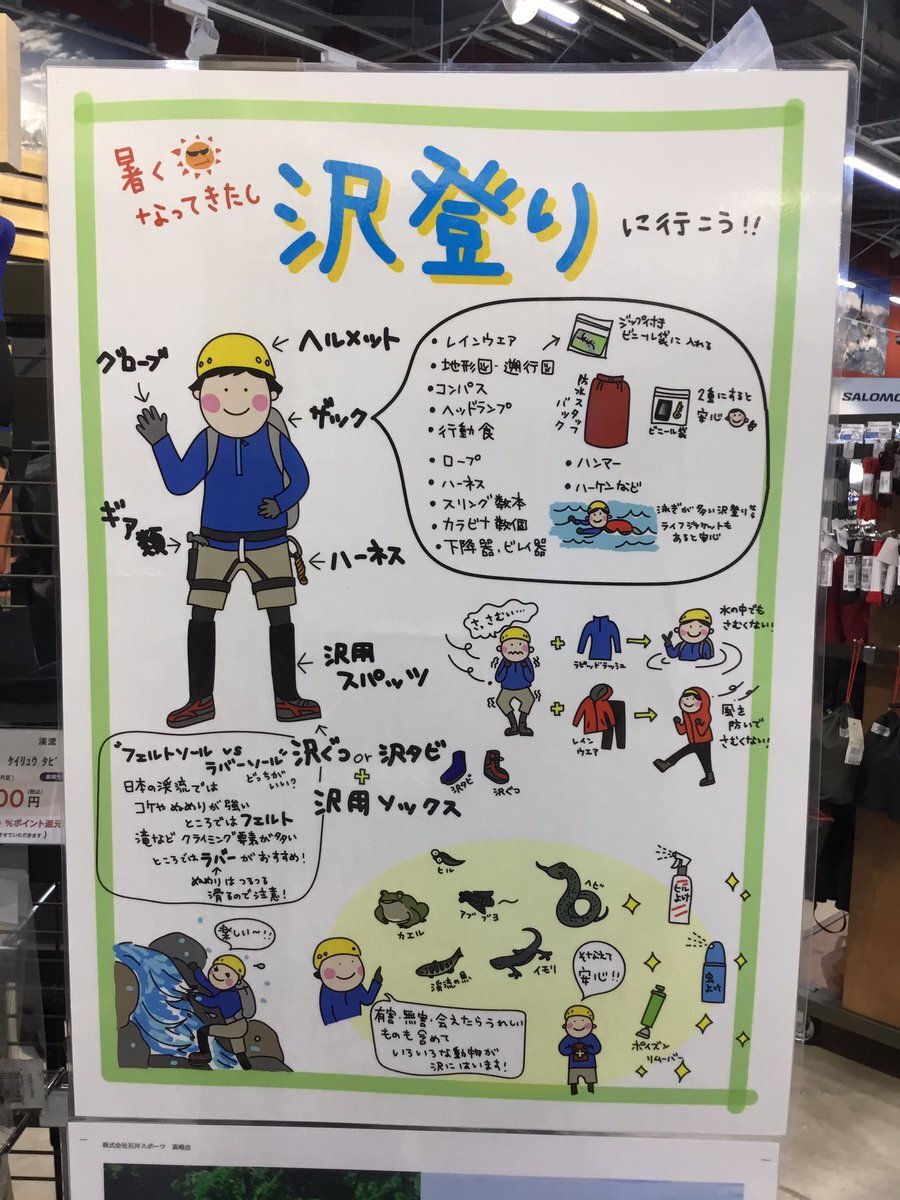 暑く
なってきたし
沢登り
に行こう!!
ヘルメット
グローブ
ザック
ギア類
ハーネス
沢用
スパッツ
沢ぐつor沢タビ
+
沢用ソックス
沢タビ
沢ぐつ
・レインウエア
・地形図・遡行図
・コンパス
・ヘッドランプ
・行動食
・ロープ
・ハーネス
・スリング数本
・カラビナ数個
・下降器、ビレイ器
・ハンマー
・ハーケンなど
ジップ付き
ビニール袋に入れる
防水
スタッフ
バック
ビニール袋
2重にすると
安心
泳ぎが多い沢登り
ライフジャケットも
あると安心
さ、さむい…
+
ラピッドラッシュ
水の中でも
さむくない!
+
レイン
ウエア
風を
防いで
さむくない!
"フェルトソール vs
ラバーソール"
どっちが
いい?
日本の渓流では
コケやぬめりが強い
ところではフェルト
滝などクライミング要素が多い
ところではラバーがおすすめ!
ぬめりはつるつる
滑るので注意!
楽しい〜!!
ヒル
カエル
アブ ブヨ
ヘビ
渓流の魚
イモリ
有害、無害、会えたらうれしい
ものも含めて
いろいろな動物が
沢にはいます!
そなえて
安心!!
ヒル
よけ
虫よけ
ポイズン
リムーバー
SALOMO
渓流
ケイリュウ タビ
00円
(税込)
%ポイント還元
させていただきます)
株式会社石井スポーツ 高崎店